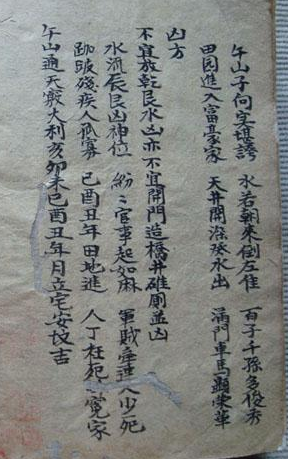 午山子向実堪誇 水若朝來倒左隹 百子千孫多俊秀
田园進入富豪家 天井開深癸水出 滿門車馬顯荣華
凶方
不宜放乾艮水凶亦不宜開門造橋井碓厠並凶
水流辰艮凶神位 紛々官事起如麻 軍賊牽連人少死
跏跛殘疾人孤寡 巳酉丑年田地進 人丁枉死見冤家
午山通天竅大利亥卯未巳酉丑年月立宅安坟吉